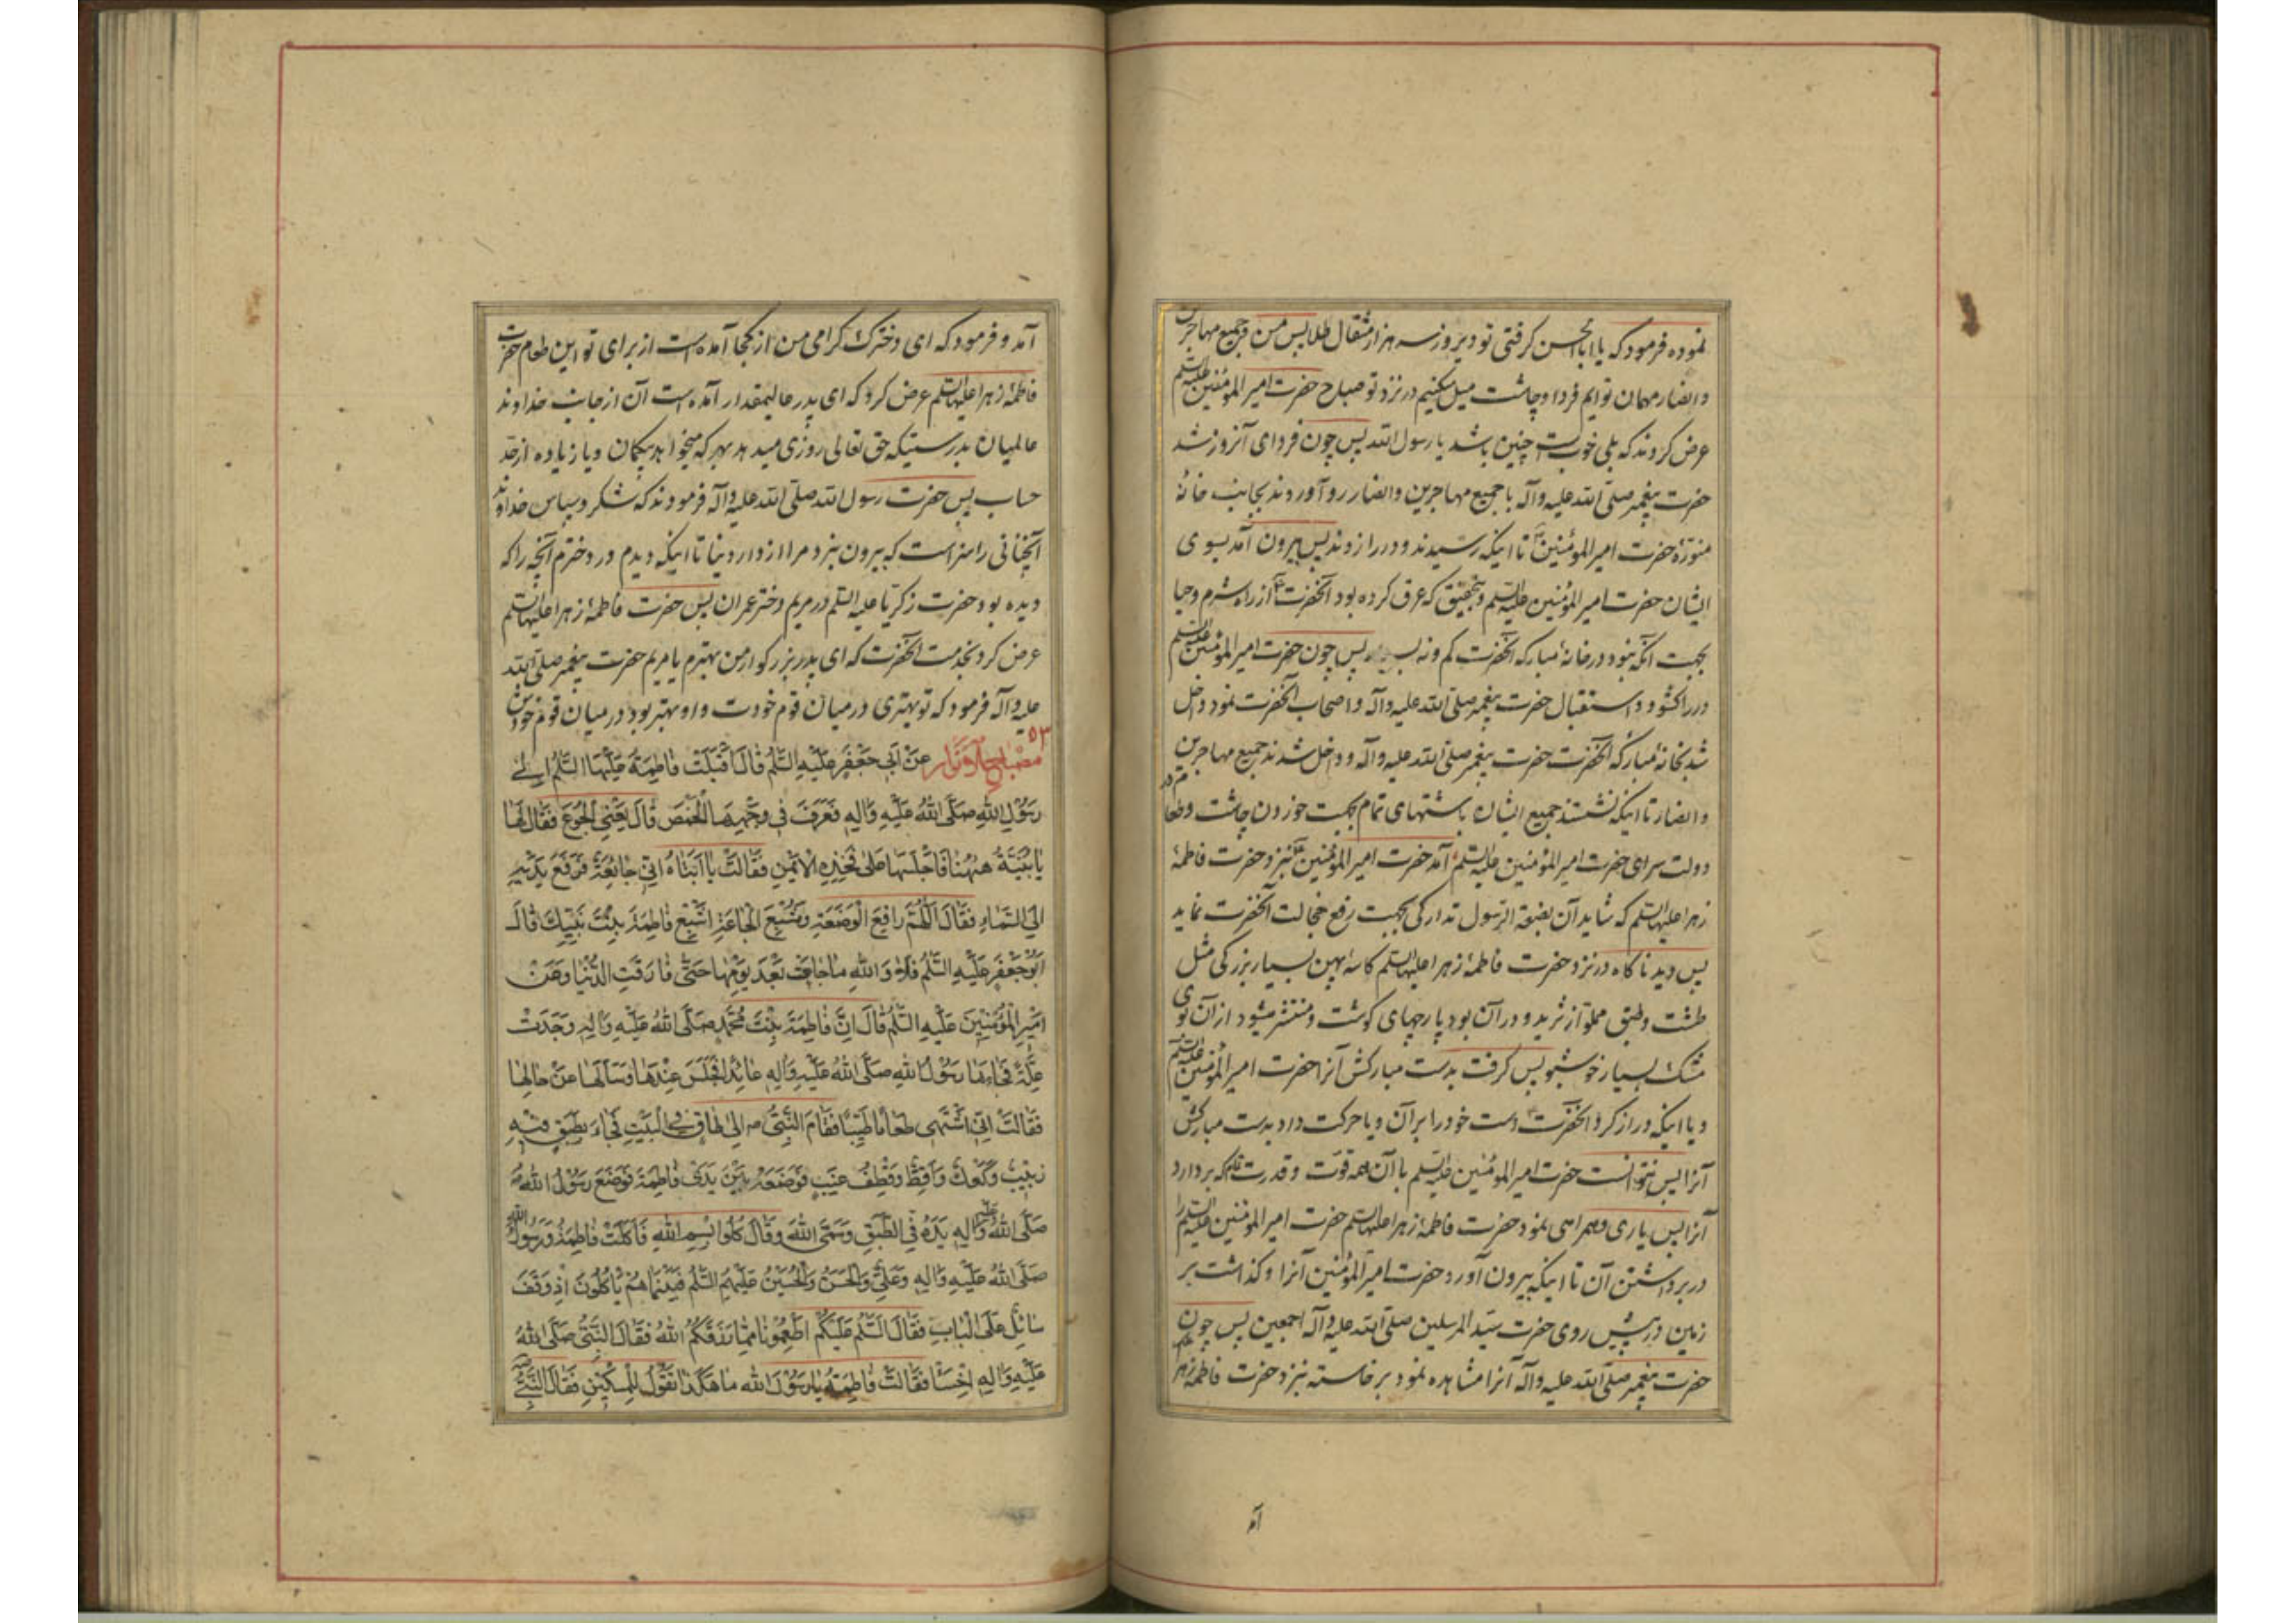 نموده فرمود که یا ابا الحسن گرفتی تو دیروز سه هزار مثقال طلا پس من و جمیع مهاجرین
و انصار مهمان توایم فردا و چاشت میل میکنیم در نزد تو صباح حضرت امیر المؤمنین علیه السلم
عرض کردند که بلی خوبست چنین باشد یا رسول الله پس چون فردای آنروز شد
حضرت پیغمبر صلی الله علیه وآله با جمیع مهاجرین و انصار رو آوردند بجانب خانهٔ
منورهٔ حضرت امیر المؤمنین تا اینکه رسیدند و در را زدند پس بیرون آمد بسوی
ایشان حضرت امیر المؤمنین علیه السلم و بتحقیق که عرق کرده بود آنحضرت از راه شرم و حیا
بجهت آنکه نبود در خانهٔ مبارکه آنحضرت کم و نه پس چون حضرت امیر المؤمنین علیه السلم
در را کشود و استقبال حضرت پیغمبر صلی الله علیه وآله و اصحاب آنحضرت نمود داخل
شد بخانهٔ مبارکه آنحضرت حضرت پیغمبر صلی الله علیه وآله و داخل شدند جمیع مهاجرین
و انصار تا اینکه نشستند جمیع ایشان باشتهای تمام بجهت خوردن چاشت و طعام در
دولت سرای حضرت امیر المؤمنین علیه السلم آمد حضرت امیر المؤمنین بنزد حضرت فاطمهٔ
زهرا علیها السلم که شاید آن بضعة الرسول تدارکی بجهت رفع خجالت آنحضرت نماید
پس دید ناکاه در نزد حضرت فاطمهٔ زهرا علیها السلم کاسهٔ پهن بسیار بزرکی مثل
طشت و طبق مملو از ثرید و در آن بود پارچهای کوشت و منتشر میشود از آن بوی
مشک بسیار خوشبو پس گرفت بدست مبارکش آنرا حضرت امیر المؤمنین علیه السلم
و یا اینکه دراز کرد آنحضرت دست خود را بر آن و یا حرکت داد بدست مبارکش
آنرا پس نتوانست حضرت امیر المؤمنین علیه السلم با آن همه قوت و قدرت که بردارد
آنرا پس یاری و همراهی نمود حضرت فاطمهٔ زهرا علیها السلم حضرت امیر المؤمنین علیه السلم را
در برداشتن آن تا اینکه بیرون آورد حضرت امیر المؤمنین آنرا و گذاشت بر
زمین در پیش روی حضرت سید المرسلین صلی الله علیه وآله اجمعین پس چون
حضرت پیغمبر صلی الله علیه وآله آنرا مشاهده نمود برخاسته بنزد حضرت فاطمهٔ زهرا
آمد
آمد و فرمود که ای دخترک کرامی من از کجا آمده است از برای تو این طعام حضرت
فاطمهٔ زهرا علیها السلم عرض کرد که ای پدر عالیمقدار آمده است آن از جانب خداوند
عالمیان بدرستیکه حق تعالی روزی میدهد بهر که میخواهد بیکمان و یا زیاده از حد
حساب پس حضرت رسول الله صلی الله علیه وآله فرمودند که شکر و سپاس خداوند
آنچنانی را سزاست که بیرون نبرد مرا از دار دنیا تا اینکه دیدم در دخترم آنچه را که
دیده بود حضرت زکریا علیه السلم در مریم دختر عمران پس حضرت فاطمهٔ زهرا علیها السلم
عرض کرد بخدمت آنحضرت که ای پدر بزرکوار من بهترم یا مریم حضرت پیغمبر صلی الله
علیه وآله فرمود که تو بهتری در میان قوم خودت و او بهتر بود در میان قوم خودش
۵۳
مصباح الانوار عَنْ اَبی جَعْفَرٍ عَلَیْهِ السَّلَمُ قالَ اَقْبَلَتْ فاطِمَةُ عَلَیْهَا السَّلَمُ اِلی
رَسُولِ اللهِ صَلَّی اللهُ عَلَیْهِ وَآلِهِ فَعَرَفَ فی وَجْهِهَا الْخَمَصَ قالَ یَعْنِی الْجُوعَ فَقالَ لَها
یا بُنَیَّةُ هیهُنا فَاَجْلَسَها عَلی فَخِذِهِ الْاَیْمَنِ فَقالَتْ یا اَبَتاهُ اِنّی جائِعَةٌ فَرَفَعَ یَدَیْهِ
اِلَی السَّماءِ فَقالَ اَللّهُمَّ رافِعَ الْوَضَعَةِ وَمُشْبِعَ الْجاعَةِ اَشْبِعْ فاطِمَةَ بِنْتَ نَبِیِّکَ قالَ
اَبُو جَعْفَرٍ عَلَیْهِ السَّلَمُ فَلا وَاللهِ ما جاعَتْ بَعْدَ یَوْمِها حَتّی فارَقَتِ الدُّنْیا وَعَنْ
اَمیرِ الْمُؤْمِنینَ عَلَیْهِ السَّلَمُ قالَ اِنَّ فاطِمَةَ بِنْتَ مُحَمَّدٍ صَلَّی اللهُ عَلَیْهِ وَآلِهِ وَجَدَتْ
عِلَّةً فَجاءَها رَسُولُ اللهِ صَلَّی اللهُ عَلَیْهِ وَآلِهِ عائِداً فَجَلَسَ عِنْدَها وَسَاَلَها عَنْ حالِها
فَقالَتْ اِنّی اَشْتَهی طَعاماً طَیِّباً فَقامَ النَّبِیُّ ص اِلی طاقٍ فِی الْبَیْتِ فَجاءَ بِطَبَقٍ فیهِ
زَبیبٌ وَکَعْکٌ وَاَقِطٌ وَقِطْفُ عِنَبٍ فَوَضَعَهُ بَیْنَ یَدَیْ فاطِمَةَ فَوَضَعَ رَسُولُ اللهِ
صَلَّی اللهُ عَلَیْهِ وَآلِهِ یَدَهُ فِی الطَّبَقِ وَسَمَّی اللهَ وَقالَ کُلُوا بِسْمِ اللهِ فَاَکَلَتْ فاطِمَةُ وَرَسُولُ اللهِ
صَلَّی اللهُ عَلَیْهِ وَآلِهِ وَعَلِیٌّ وَالْحَسَنُ وَالْحُسَیْنُ عَلَیْهِمُ السَّلَمُ فَبَیْنَما هُمْ یَاْکُلُونَ اِذْ وَقَفَ
سائِلٌ عَلَی الْبابِ فَقالَ السَّلَمُ عَلَیْکُمْ اَطْعِمُونا مِمّا رَزَقَکُمُ اللهُ فَقالَ النَّبِیُّ صَلَّی اللهُ
عَلَیْهِ وَآلِهِ اِخْسَاْ فَقالَتْ فاطِمَةُ یا رَسُولَ اللهِ ما هکَذا تَقُولُ لِلْمِسْکینِ فَقالَ النَّبِیُّ ص